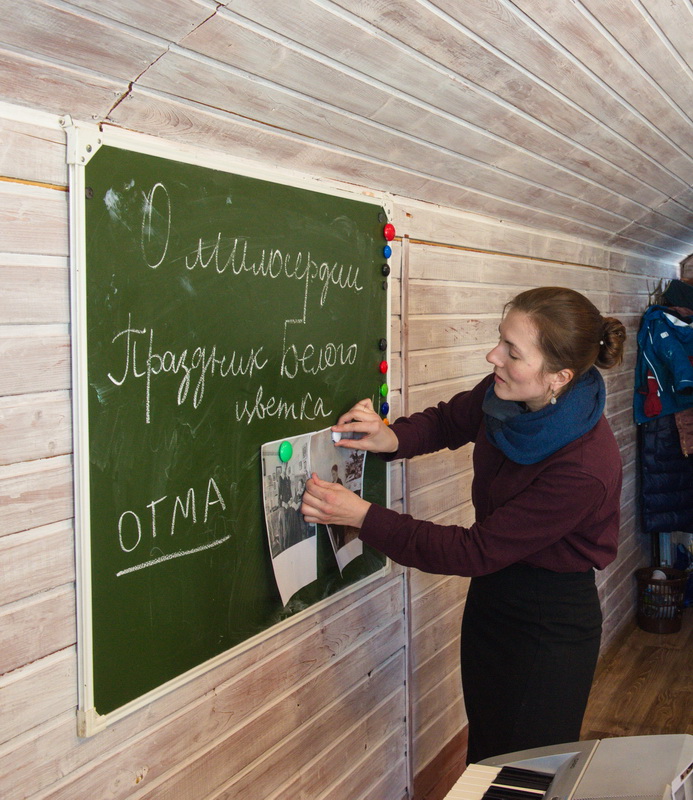 О милосердии
Праздник Белого
цветка
ОТМА